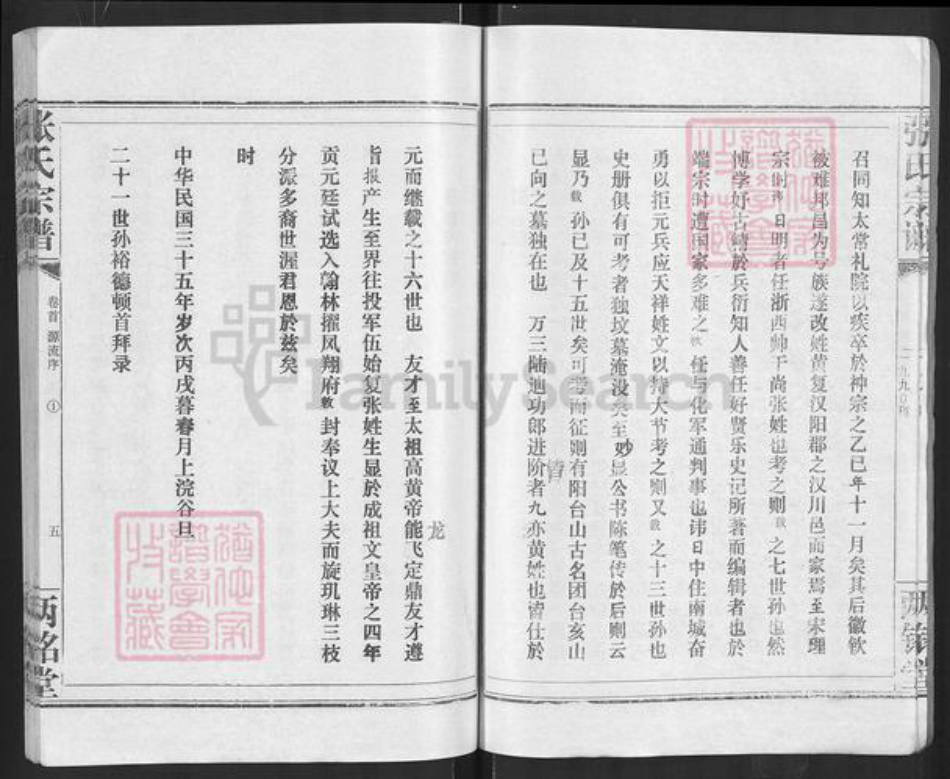 张氏宗谱
召同知太常礼院以疾卒於神宗之乙巳年十一月矣其后徽钦
被难邦昌为号族遂改姓黄复汉阳郡之汉川邑而家焉至宋理
宗时讳日明者任浙西帅干尚张姓也考之则载之七世孙也然
博学好古精於兵衍知人善任好贤乐史记所著而编辑者也於
端宗时遭国家多难之秋任与化军通判事也讳日中住南城奋
勇以拒元兵应天祥姓文以持大节考之则又载之十三世孙也
史册俱有可考者独坟墓淹没矣至妙显公书陈笔传於后则云
显乃载孙已及十五世矣可考而征则有阳台山古名团台亥山
已向之墓独在也 万三陆迪功郎进阶者九亦黄姓也皆仕於
皆
元而继载之十六世也 友才至太祖高黄帝能飞定鼎友才遵
龙
旨报产生至界往投军伍始复张姓生显於成祖文皇帝之四年
贡元廷试选入翰林擢凤翔府敕封奉议上大夫而旋玑琳三枝
分派多裔世渥君恩於兹矣
时
中华民国三十五年岁次丙戌暮春月上浣谷旦
二十一世孙裕德顿首拜录
张氏宗谱
卷首 源流序
①
五
两铭堂
FamilySearch